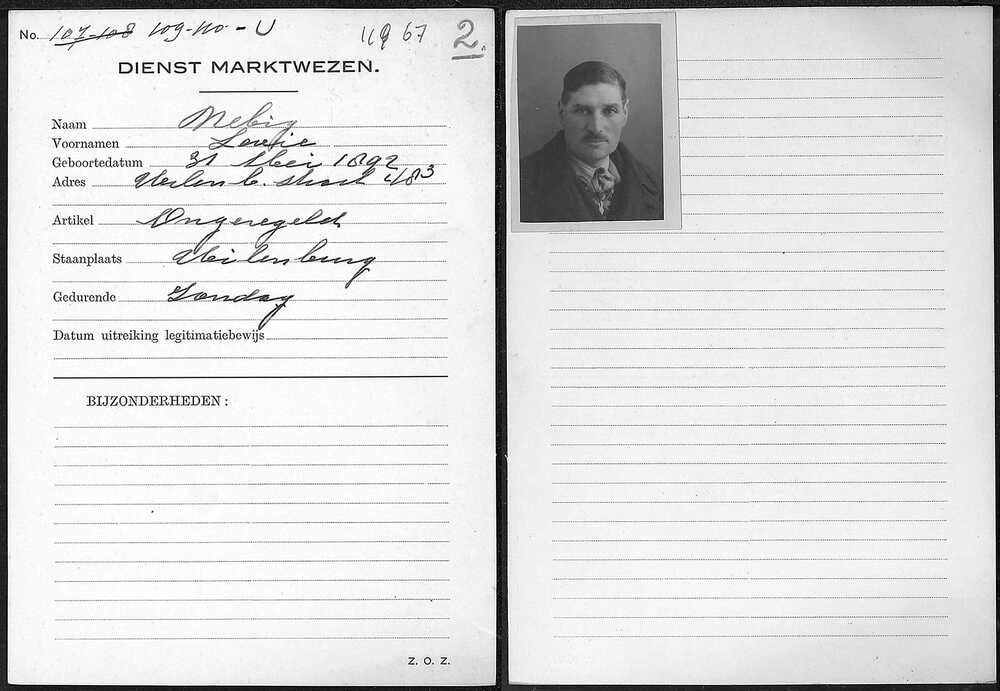 No. 107-108 109-110-U 11967 2.
DIENST MARKTWEZEN.
Naam Nebig
Voornamen Louie
Geboortedatum 31 Mei 1892
Adres
Artikel Ongeregeld
Staanplaats Uilenburg
Gedurende Zondag
Datum uitreiking legitimatiebewijs
BIJZONDERHEDEN :
Z. O. Z.